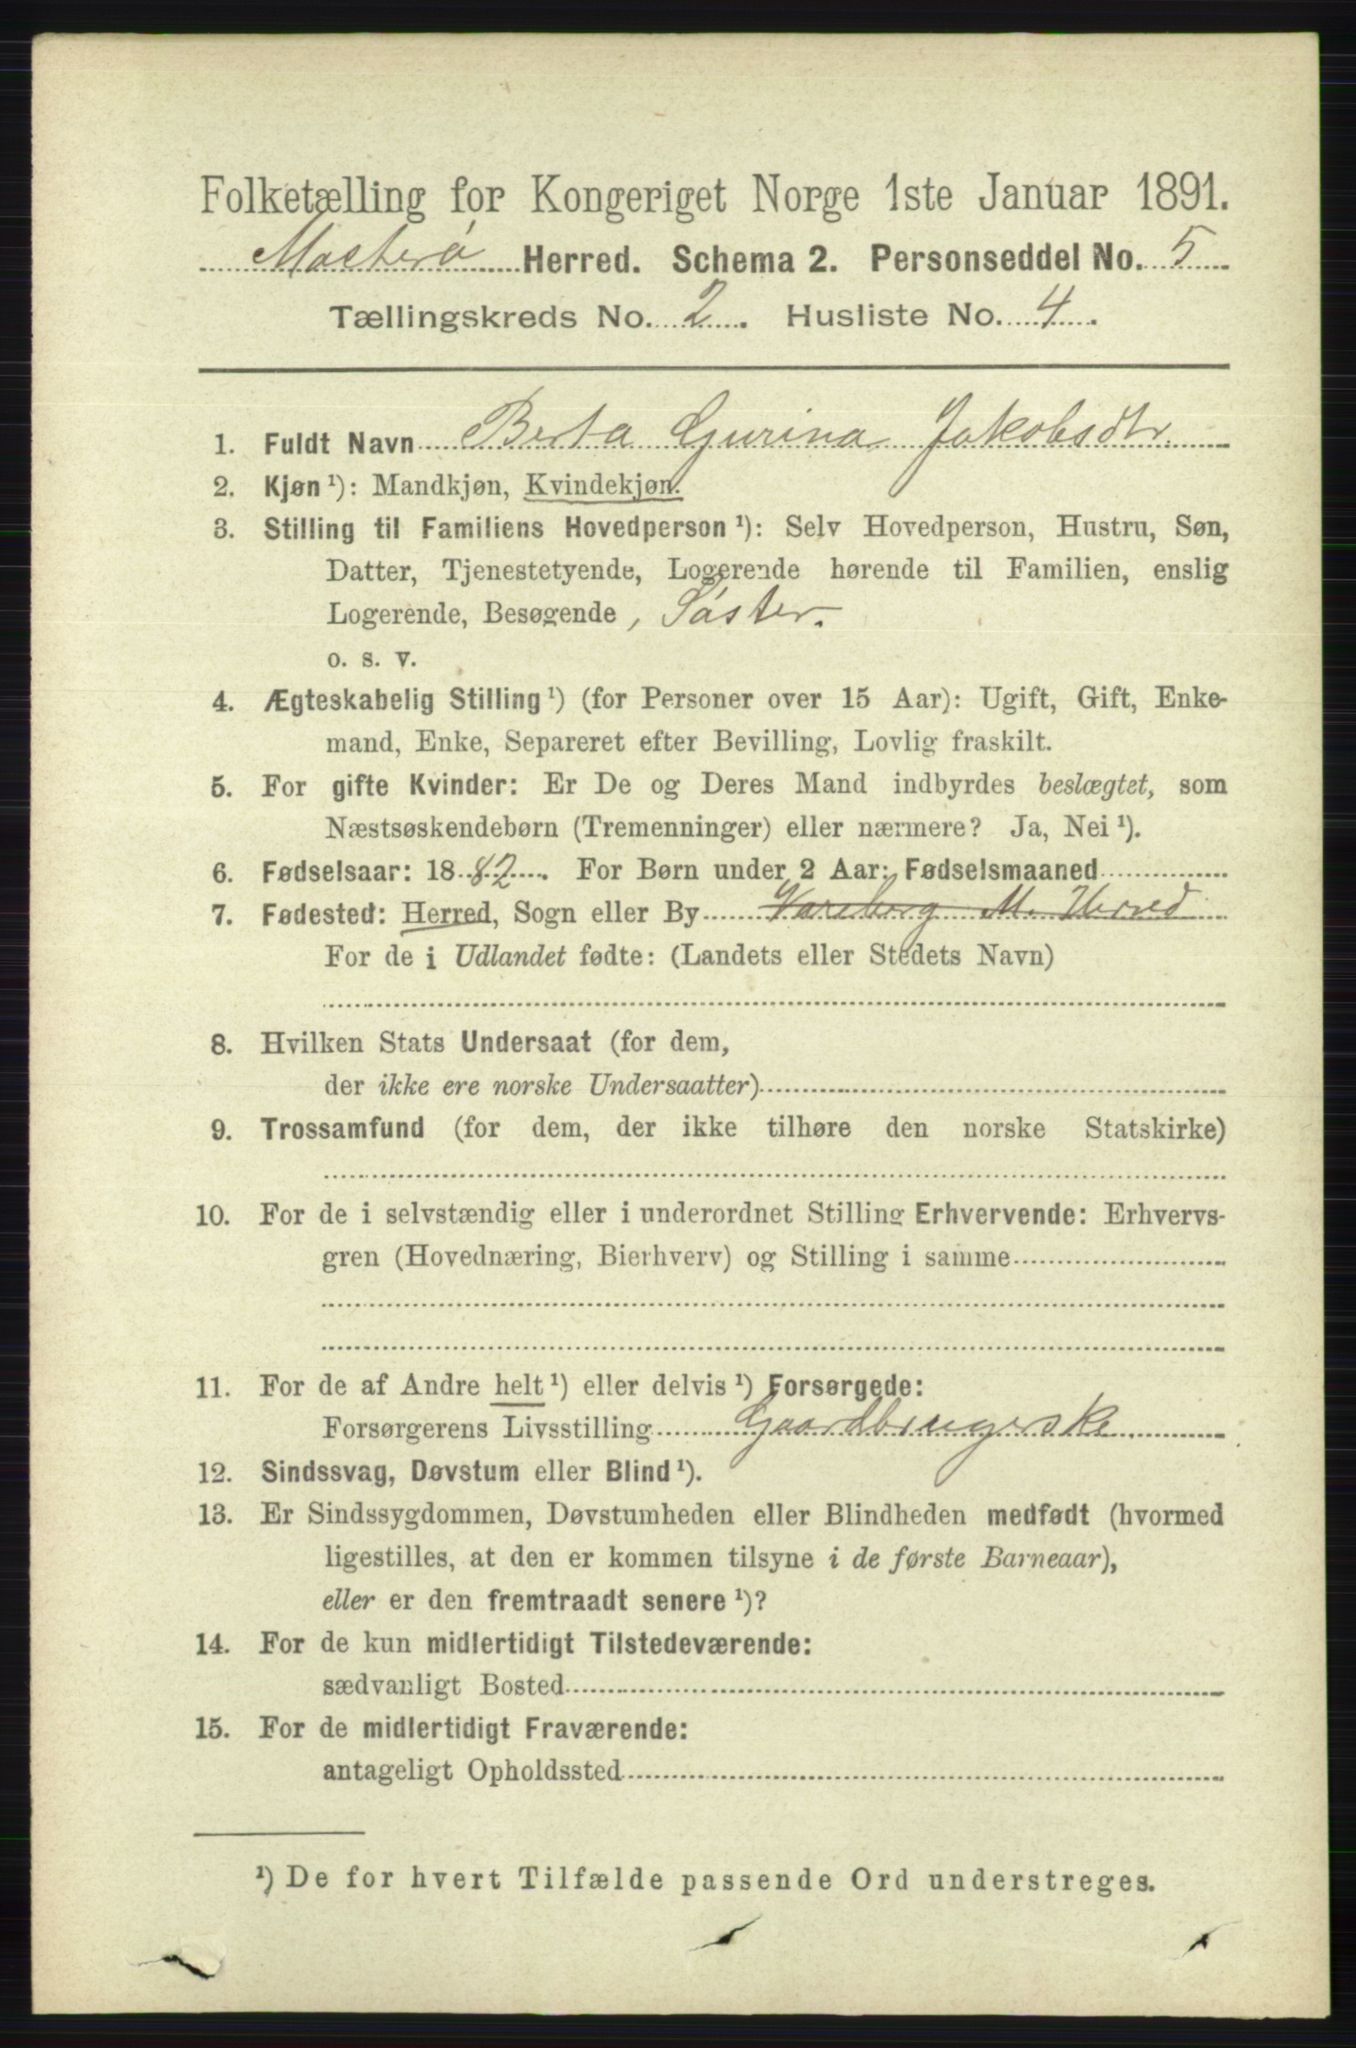 Folketælling for Kongeriget Norge 1ste Januar 1891.
Mosterø Herred. Schema 2. Personseddel No. 5
Tællingskreds No. 2. Husliste No. 4.
1. Fuldt Navn Berta Gurina Jakobsdtr.
2. Kjøn ¹): Mandkjøn, Kvindekjøn.
3. Stilling til Familiens Hovedperson ¹): Selv Hovedperson, Hustru, Søn,
Datter, Tjenestetyende, Logerende hørende til Familien, enslig
Logerende, Besøgende, Søster.
o. s. v.
4. Ægteskabelig Stilling ¹) (for Personer over 15 Aar): Ugift, Gift, Enke-
mand, Enke, Separeret efter Bevilling, Lovlig fraskilt.
5. For gifte Kvinder: Er De og Deres Mand indbyrdes beslægtet, som
Næstsøskendebørn (Tremenninger) eller nærmere? Ja, Nei ¹).
6. Fødselsaar: 1882. For Børn under 2 Aar: Fødselsmaaned
7. Fødested: Herred, Sogn eller By Vareberg M. Herred
For de i Udlandet fødte: (Landets eller Stedets Navn)
8. Hvilken Stats Undersaat (for dem,
der ikke ere norske Undersaatter)
9. Trossamfund (for dem, der ikke tilhøre den norske Statskirke)
10. For de i selvstændig eller i underordnet Stilling Erhvervende: Erhvervs-
gren (Hovednæring, Bierhverv) og Stilling i samme
11. For de af Andre helt ¹) eller delvis ¹) Forsørgede:
Forsørgerens Livsstilling Gaardbrugerske
12. Sindssvag, Døvstum eller Blind ¹).
13. Er Sindssygdommen, Døvstumheden eller Blindheden medfødt (hvormed
ligestilles, at den er kommen tilsyne i de første Barneaar),
eller er den fremtraadt senere ¹)?
14. For de kun midlertidigt Tilstedeværende:
sædvanligt Bosted
15. For de midlertidigt Fraværende:
antageligt Opholdssted
¹) De for hvert Tilfælde passende Ord understreges.